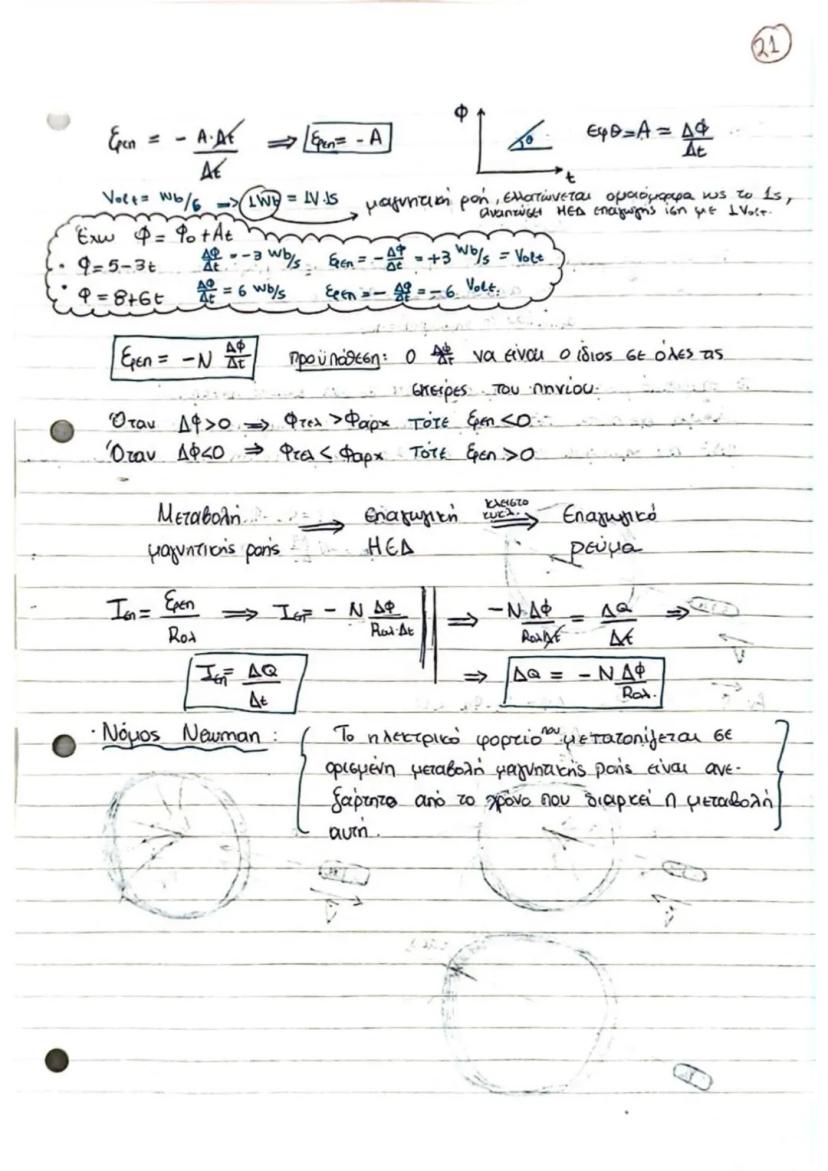 21
Εεπ = - A·Δt / Δt ⇒ Εεπ = - A
Φ t θ εφθ = A = ΔΦ/Δt
Volt = Wb/s ⇒ 1Wb = 1V·1s μαγνητική ροή, ελαττώνεται ομοιόμορφα ως το 1s,
αναπτύσει ΗΕΔ επαγωγής ίση με 1Volt.
Έχω Φ = Φ0 + At
• Φ = 5 - 3t ΔΦ/Δt = -3 Wb/s Εεπ = - ΔΦ/Δt = +3 Wb/s = Volt
• Φ = 8 + 6t ΔΦ/Δt = 6 Wb/s Εεπ = - ΔΦ/Δt = -6 Volt.
Εεπ = -N ΔΦ/Δt Προϋπόθεση: Ο ΔΦ/Δt να είναι ο ίδιος σε όλες τις
σπείρες του πηνίου.
Όταν ΔΦ>0 ⇒ Φτελ > Φαρχ τότε Εεπ<0
Όταν ΔΦ<0 ⇒ Φτελ < Φαρχ τότε Εεπ>0
Μεταβολή ⇒ επαγωγική κλειστό κυκλ. ⇒ Επαγωγικό
μαγνητικής ροής ΗΕΔ ρεύμα
Ιεπ = Εεπ/Rολ ⇒ Ιεπ = - N ΔΦ/Rολ·Δt ⇒ -N·ΔΦ/RολΔt = ΔQ/Δt ⇒
Ιεπ = ΔQ/Δt ⇒ ΔQ = - N ΔΦ/Rολ.
· Νόμος Neuman : Το ηλεκτρικό φορτίο που μετατοπίζεται σε
ορισμένη μεταβολή μαγνητικής ροής είναι ανε-
ξάρτητο από το χρόνο που διαρκεί η μεταβολή
αυτή.